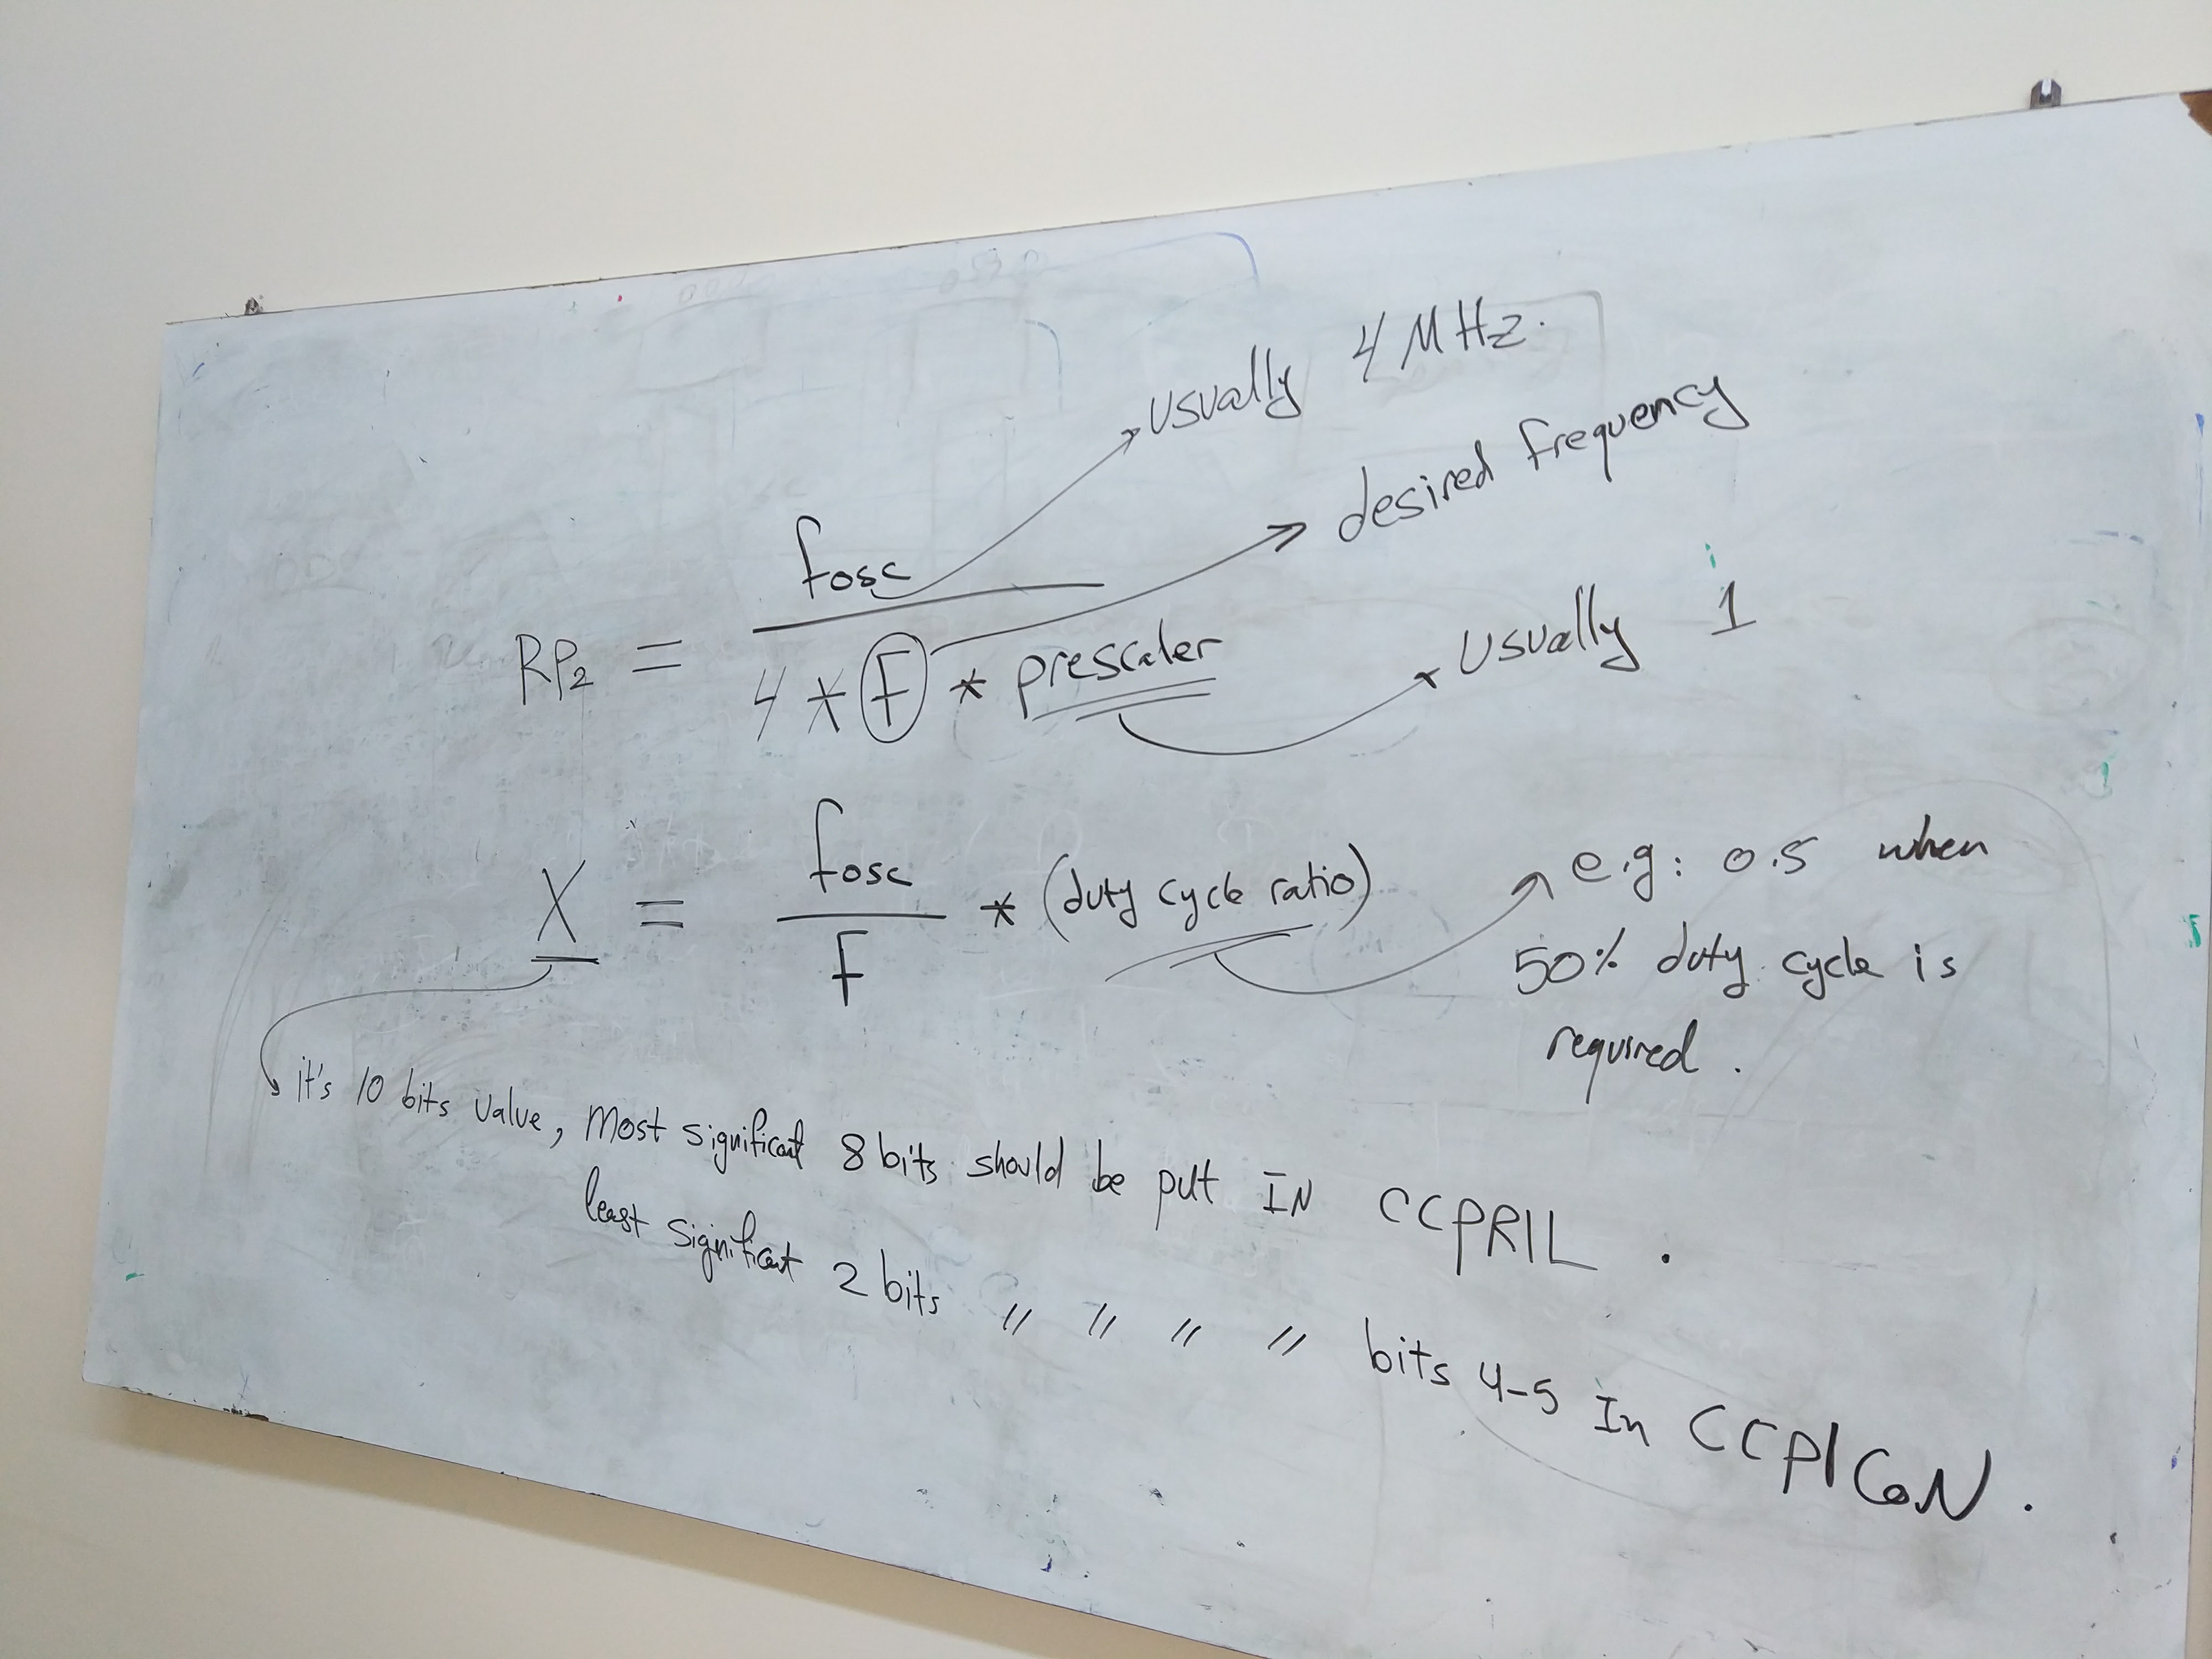 usually 4 MHz.
desired frequency
RP2 = fosc / 4 * F * prescaler
usually 1
X = fosc / F * (duty cycle ratio)
e.g: 0.5 when
50% duty cycle is
required.
it's 10 bits value, Most significant 8 bits should be put IN CCPR1L.
least significant 2 bits " " " " bits 4-5 In CCP1CON.